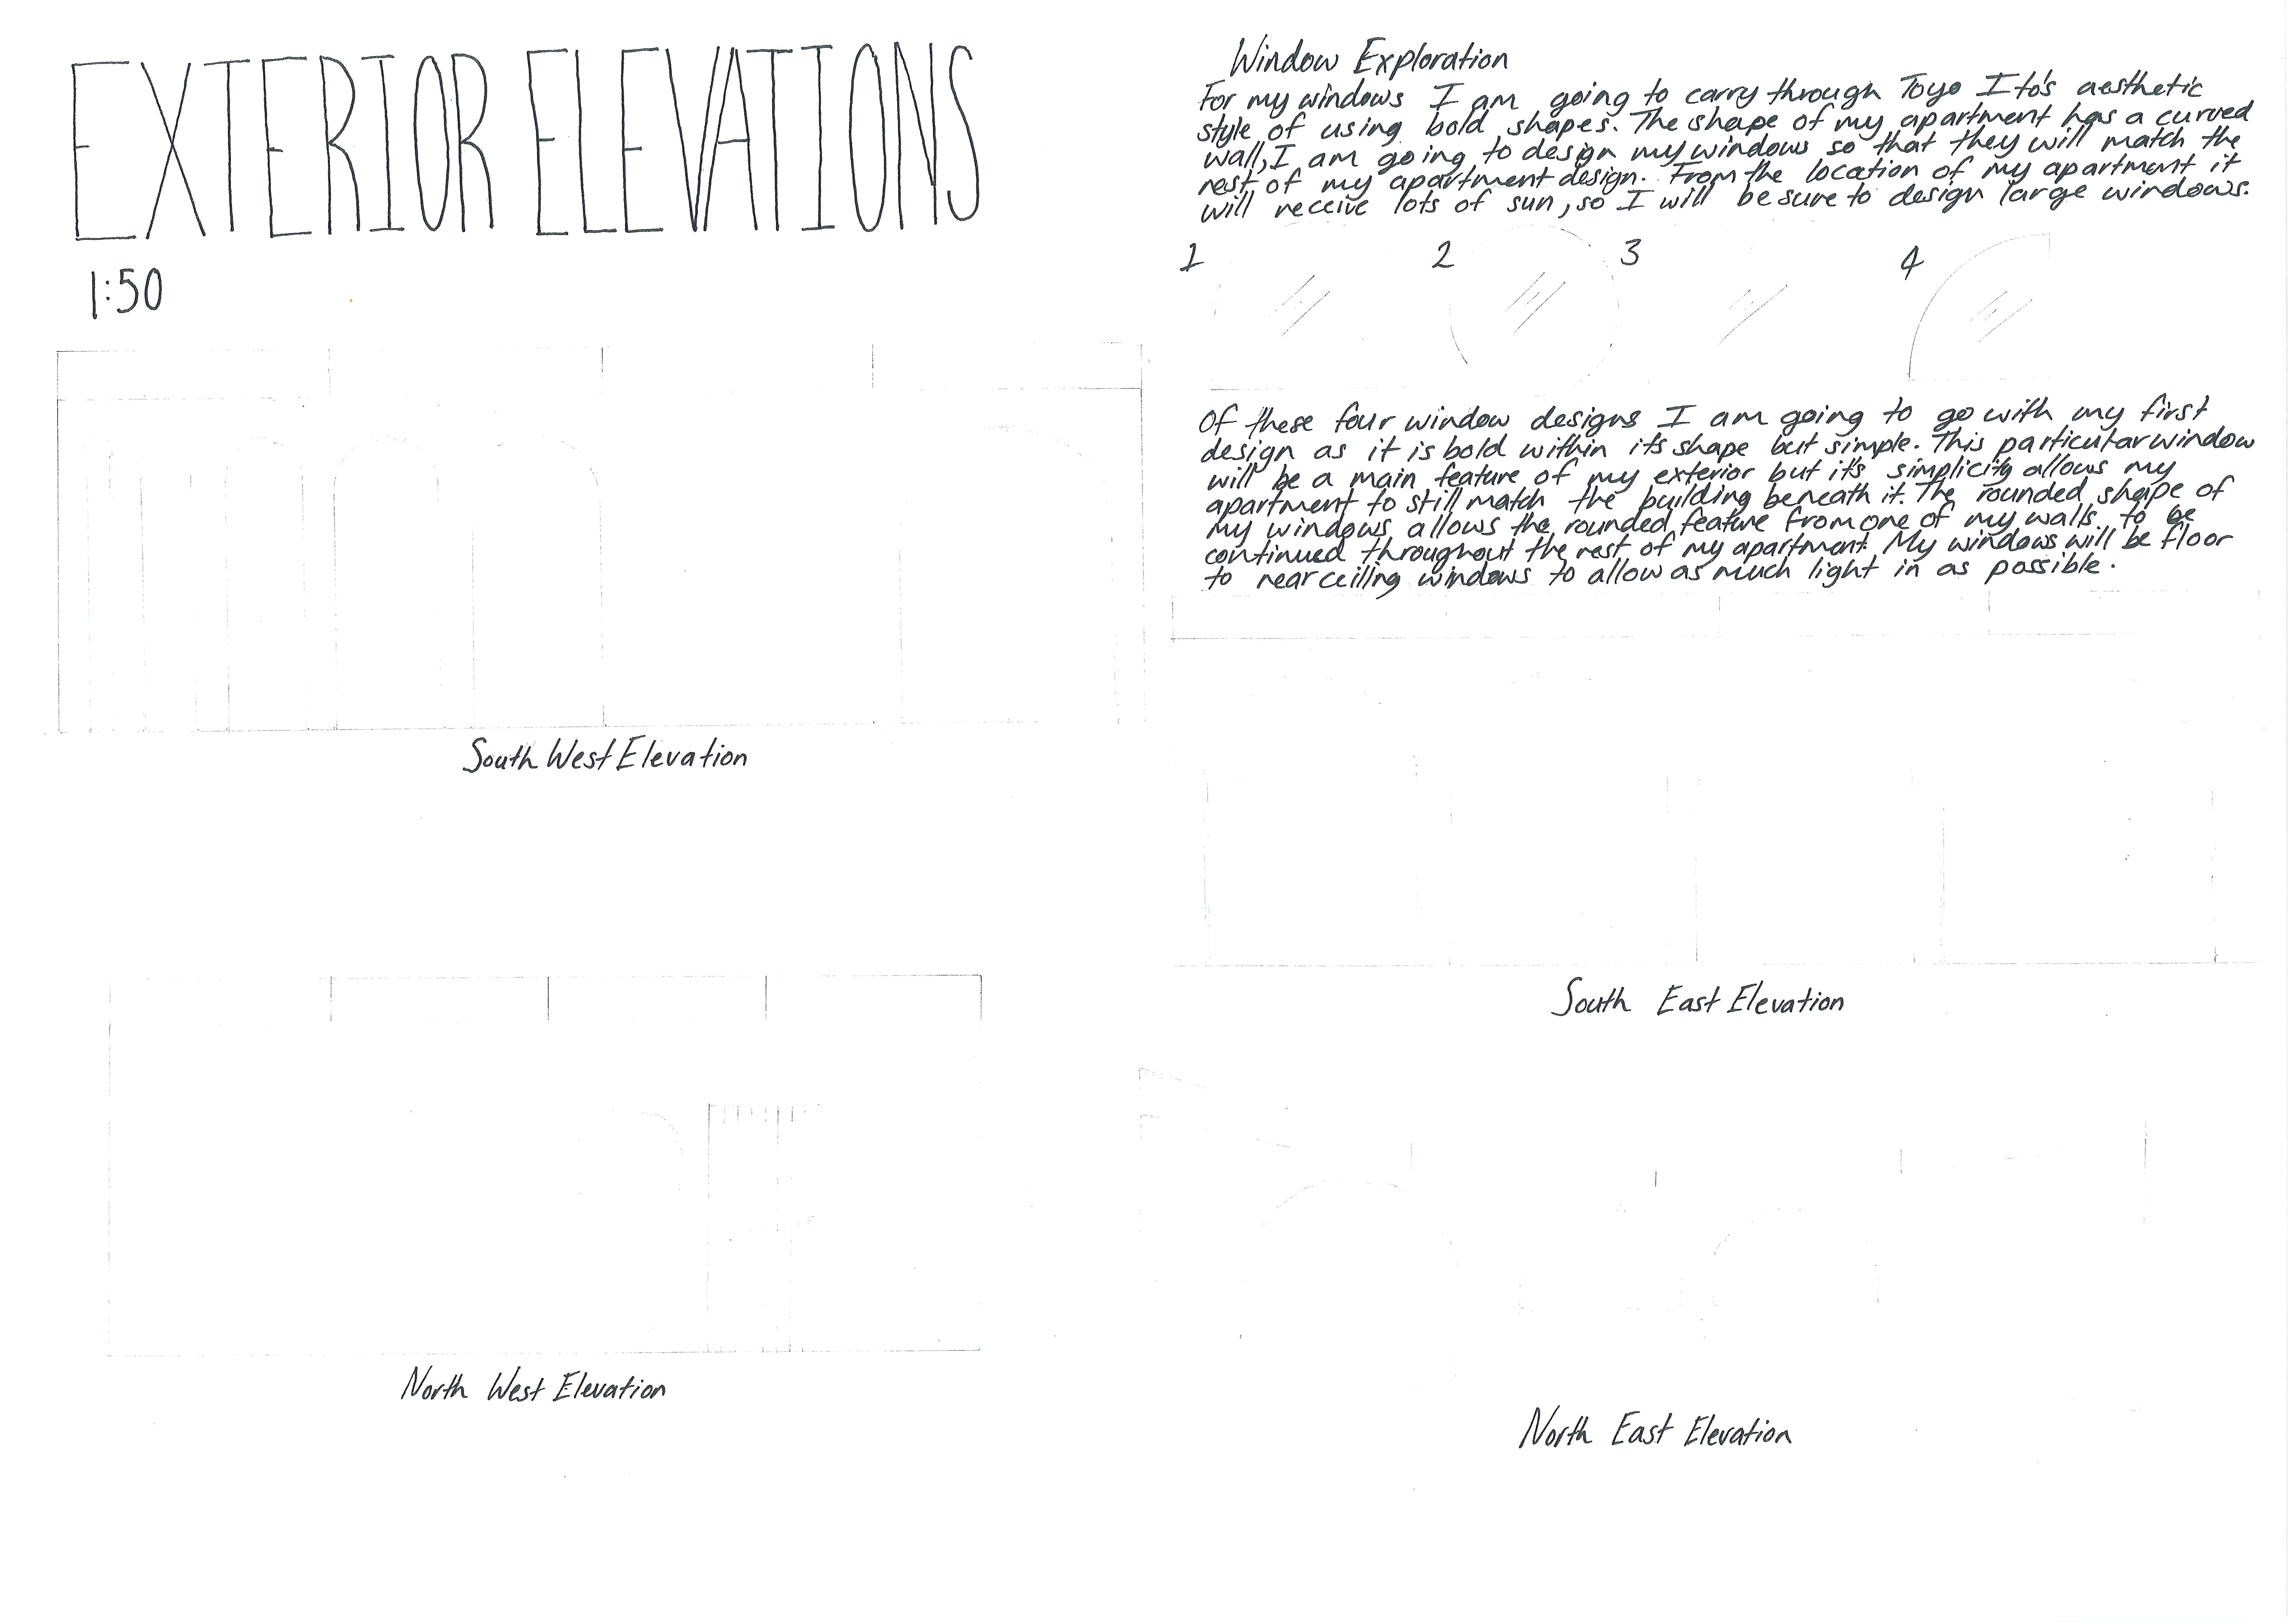 EXTERIOR ELEVATIONS
1:50
Window Exploration
For my windows I am going to carry through Toyo Ito's aesthetic
style of using bold shapes. The shape of my apartment has a curved
wall, I am going to design my windows so that they will match the
rest of my apartment design. From the location of my apartment it
will receive lots of sun, so I will be sure to design large windows.
1 2 3 4
Of these four window designs I am going to go with my first
design as it is bold within its shape but simple. This particular window
will be a main feature of my exterior but it's simplicity allows my
apartment to still match the building beneath it. The rounded shape of
my windows allows the rounded feature from one of my walls to be
continued throughout the rest of my apartment. My windows will be floor
to near ceilling windows to allow as much light in as possible.
South West Elevation
South East Elevation
North West Elevation
North East Elevation